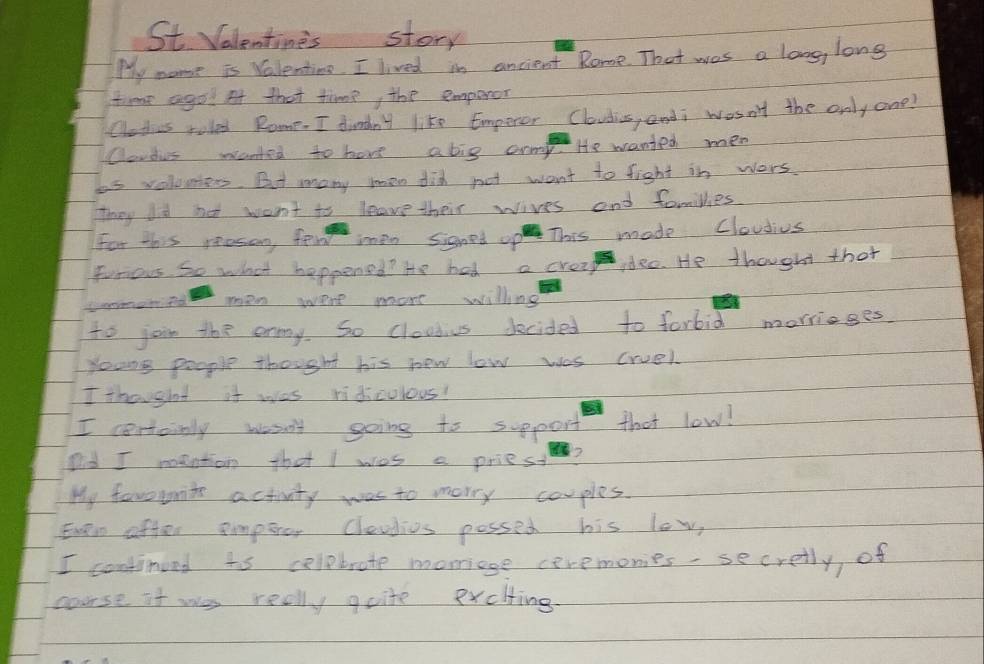 St. Valentine's story
My name is Valentine. I lived in ancient Rome. That was a long, long
time ago! At that time, the emperor
Claudius ruled Rome. I dindn't like Emperor Claudius, and i wasn't the only one!
Claudus wanted to have a big army He wanted men
as volunters. But many men did not want to fight in wars.
They did not want to leave their wives and families.
For this reason, few men signed up This made Claudius
furious. So what happened? He had a crazy idea. He thought that
men were more willing
to join the army. So Claudius decided to forbid marriages.
Young people thought his new law was cruel.
I thought it was ridiculous!
I certainly wasn't going to support that law!
Did I mention that I was a priest?
My favourite activity was to marry couples.
Even after emperor Claudius passed his law,
I continued to celebrate marriage ceremonies - secretly, of
course it was really quite exciting.